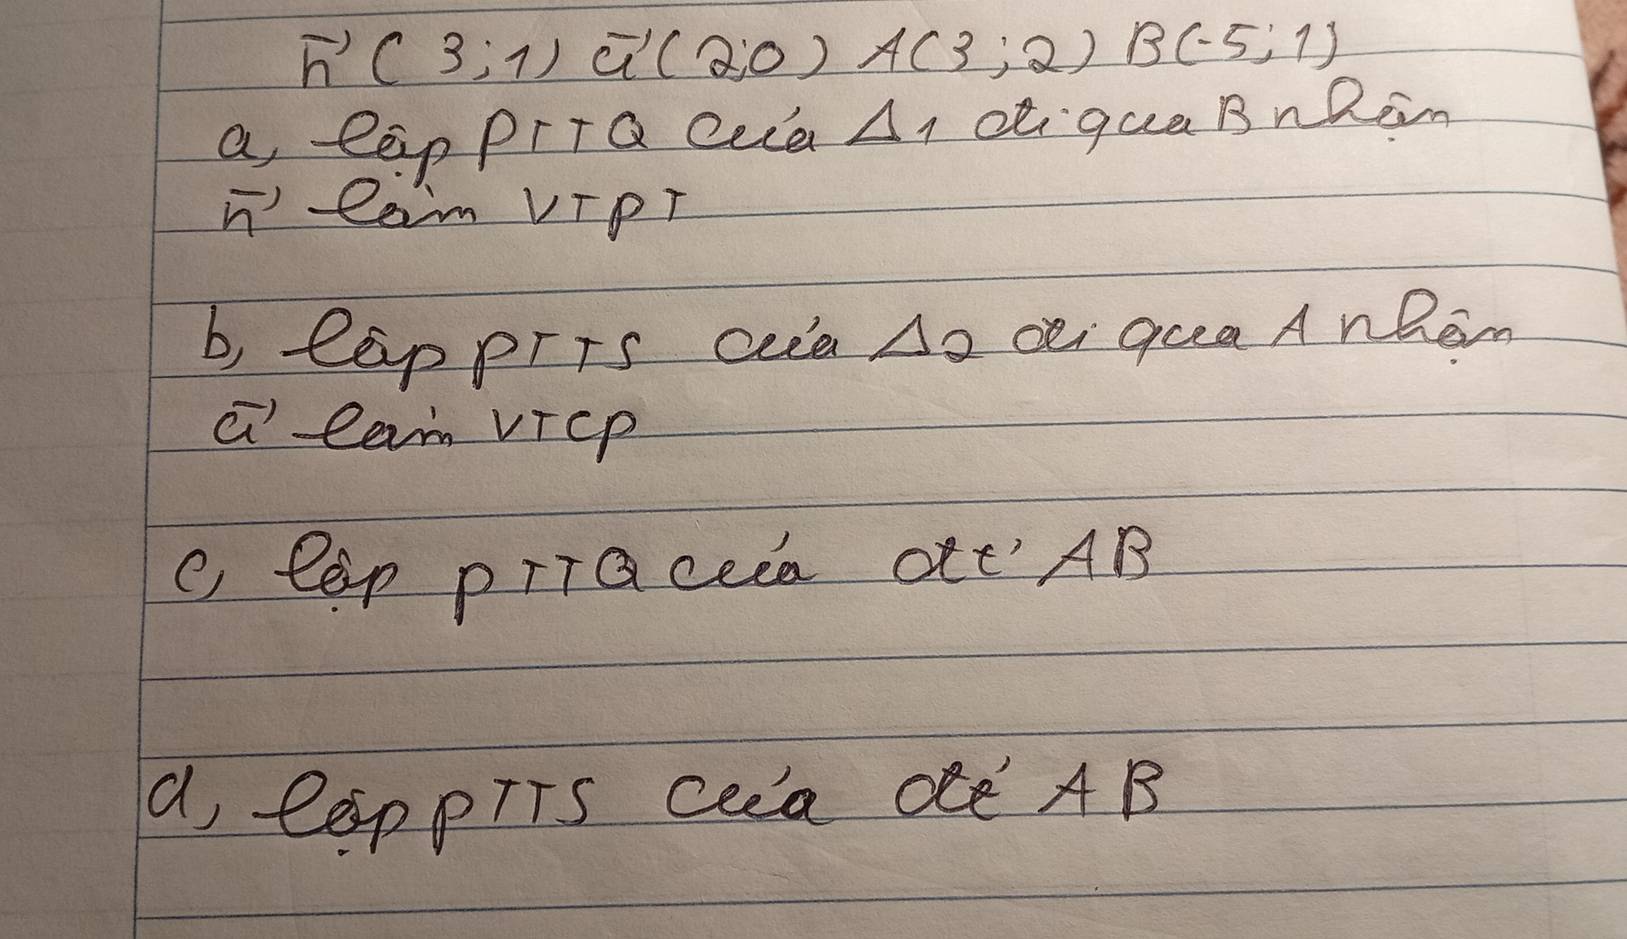 n⃗ (3;1) u⃗ (2;0) A(3;2) B(-5;1)
a, lập PTTQ của Δ1 đi qua B nhận
n⃗ làm VTPT
b, lập PTTS của Δ2 đi qua A nhận
u⃗ làm VTCP
c, lập PTTQ của đt AB
d, lập PTTS của đt AB